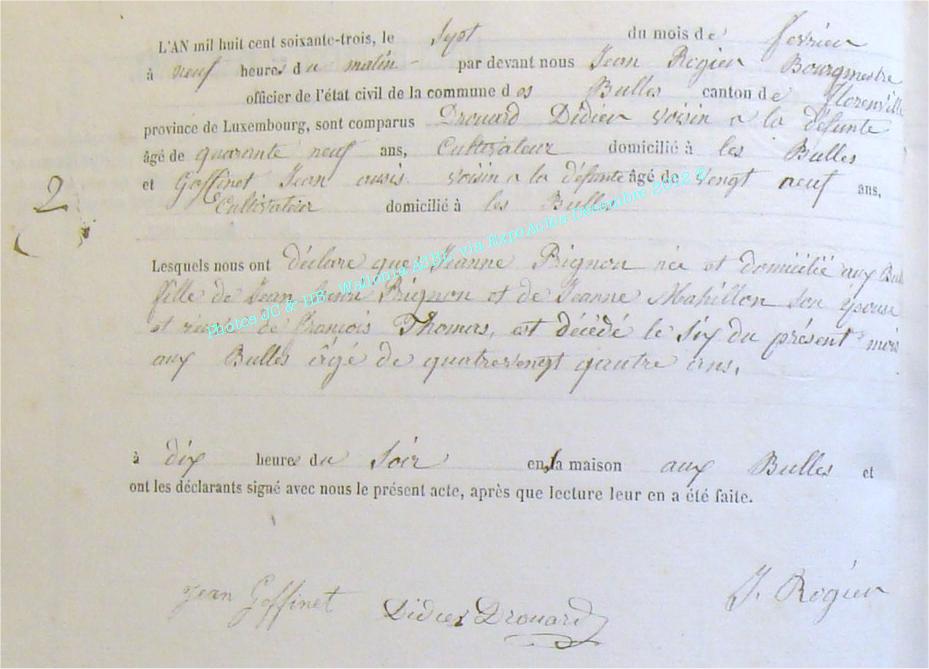 L'AN mil huit cent soixante-trois, le Sept du mois de fevrier
à neuf heures du matin - par devant nous Jean Rogier Bourgmestre
officier de l'état civil de la commune des Bulles canton de florenville
province de Luxembourg, sont comparus Drouard Didier voisin a la défunte
âgé de quarante neuf ans, Cultivateur domicilié à les Bulles
et Goffinet Jean aussi voisin a la défunte âgé de vengt neuf ans,
Cultivateur domicilié à les Bulles
2
Lesquels nous ont déclare que Jeanne Pignon née et domicilié aux Bul
fille de Jean henri Pignon et de Jeanne Mabillon son épouse
et de francois Thomas, est décédé le six du présent mois
aux Bulles âgé de quatrevengt qautre ans.
Photos JC & HB, Wallonia ASBL via ExpoActes Décembre 2012
à dix heures du Soir en la maison aux Bulles et
ont les déclarants signé avec nous le présent acte, après que lecture leur en a été faite.
Jean Goffinet Didier Drouard J. Rogier